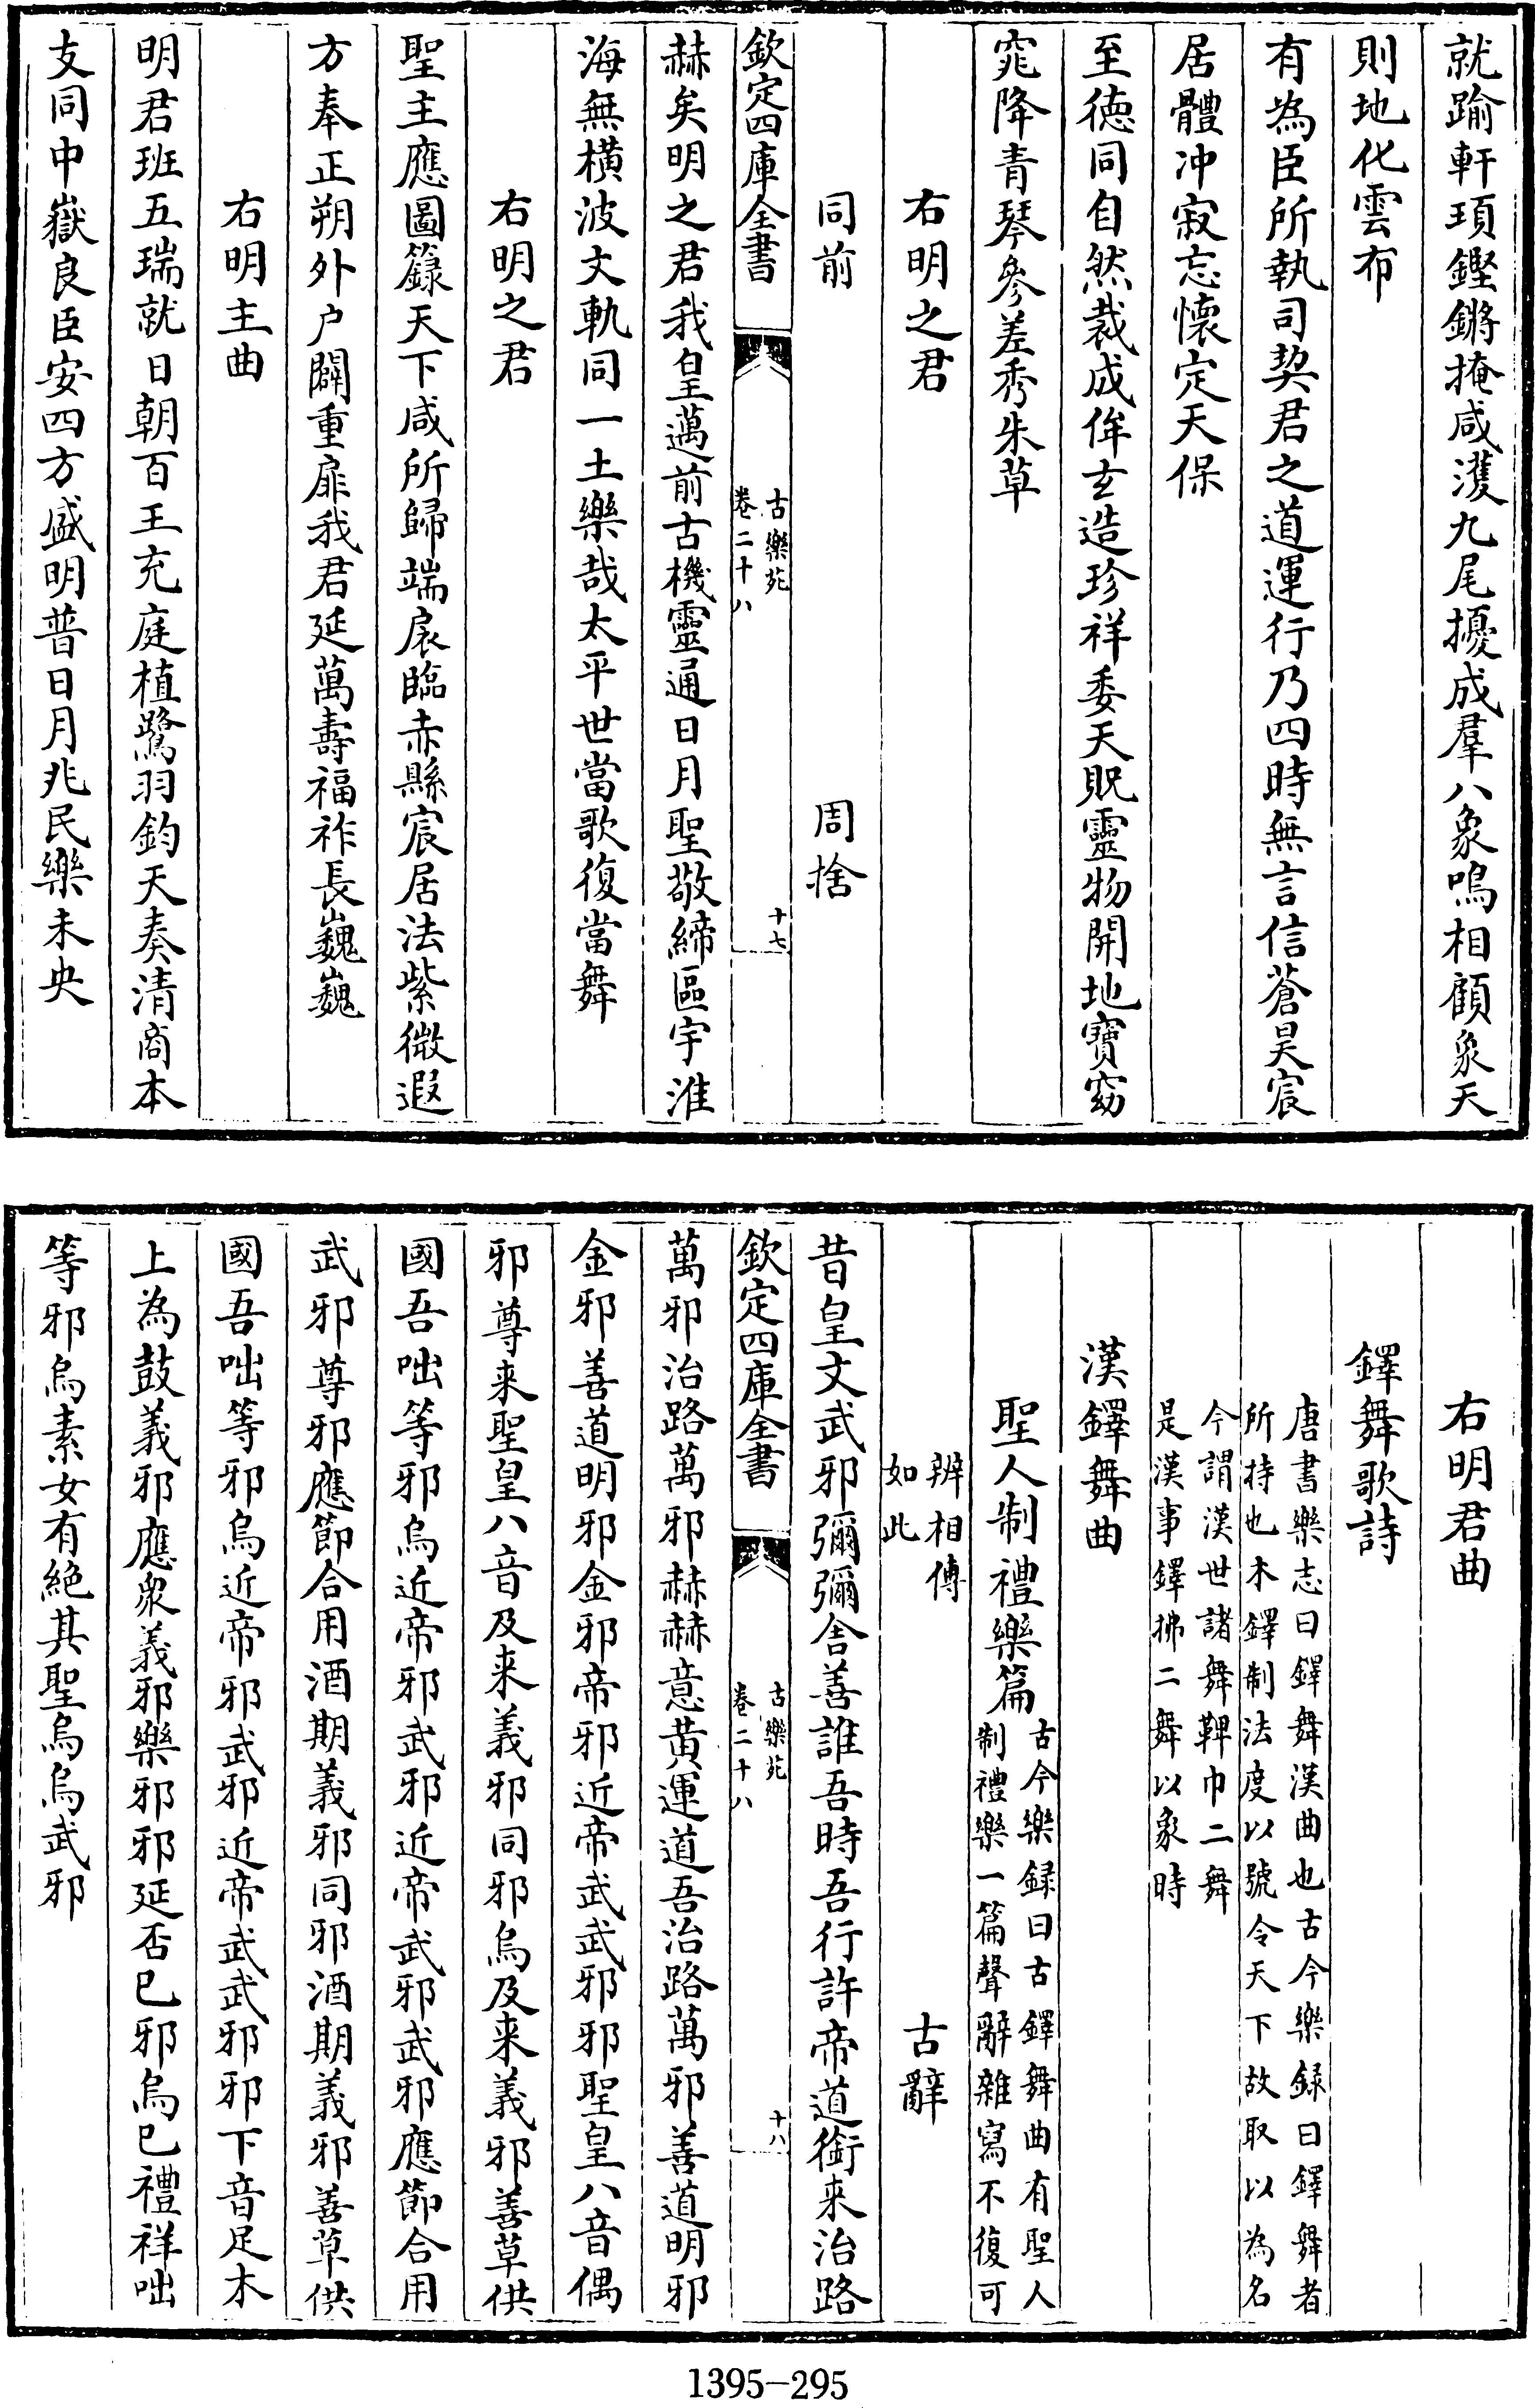 就踰軒頊鏗鏘掩咸濩九尾擾成羣八象鳴相顧象天
則地化雲布
有為臣所執司契君之道運行乃四時無言信蒼昊宸
居體冲寂忘懷定天保
至德同自然裁成侔玄造珍祥委天貺靈物開地寶窈
窕降青琴參差秀朱草
右明之君
同前 周捨
欽定四庫全書 古樂苑 卷二十八 十七
赫矣明之君我皇邁前古機靈通日月聖敬締區宇淮
海無橫波文軌同一土樂哉太平世當歌復當舞
右明之君
聖主應圖籙天下咸所歸端扆臨赤縣宸居法紫微遐
方奉正朔外户闢重扉我君延萬壽福祚長巍巍
右明主曲
明君班五瑞就日朝百王充庭植鷺羽鈞天奏清商本
支同中嶽良臣安四方盛明普日月兆民樂未央
右明君曲
鐸舞歌詩
唐書樂志曰鐸舞漢曲也古今樂録曰鐸舞者
所持也木鐸制法度以號令天下故取以為名
今謂漢世諸舞鞞巾二舞
是漢事鐸拂二舞以象時
漢鐸舞曲
聖人制禮樂篇 古今樂録曰古鐸舞曲有聖人
制禮樂一篇聲辭雜寫不復可
辨相傳
如此 古辭
昔皇文武邪彌彌舍善誰吾時吾行許帝道銜来治路
欽定四庫全書 古樂苑 卷二十八 十八
萬邪治路萬邪赫赫意黄運道吾治路萬邪善道明邪
金邪善道明邪金邪帝邪近帝武武邪邪聖皇八音偶
邪尊来聖皇八音及来義邪同邪烏及来義邪善草供
國吾咄等邪烏近帝邪武邪近帝武邪武邪應節合用
武邪尊邪應節合用酒期義邪同邪酒期義邪善草供
國吾咄等邪烏近帝邪武邪近帝武武邪邪下音足木
上為鼓義邪應衆義邪樂邪邪延否已邪烏已禮祥咄
等邪烏素女有絶其聖烏烏武邪
1395-295